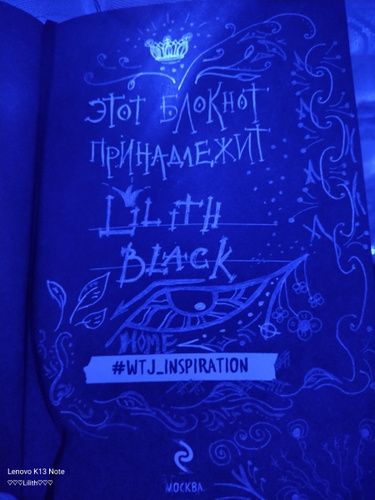 ЭТОТ БЛОКНОТ
ПРИНАДЛЕЖИТ
LILITH
BLACK
HOME
#WTJ_INSPIRATION
МОСКВА
Lenovo K13 Note
♡♡♡Lilith♡♡♡